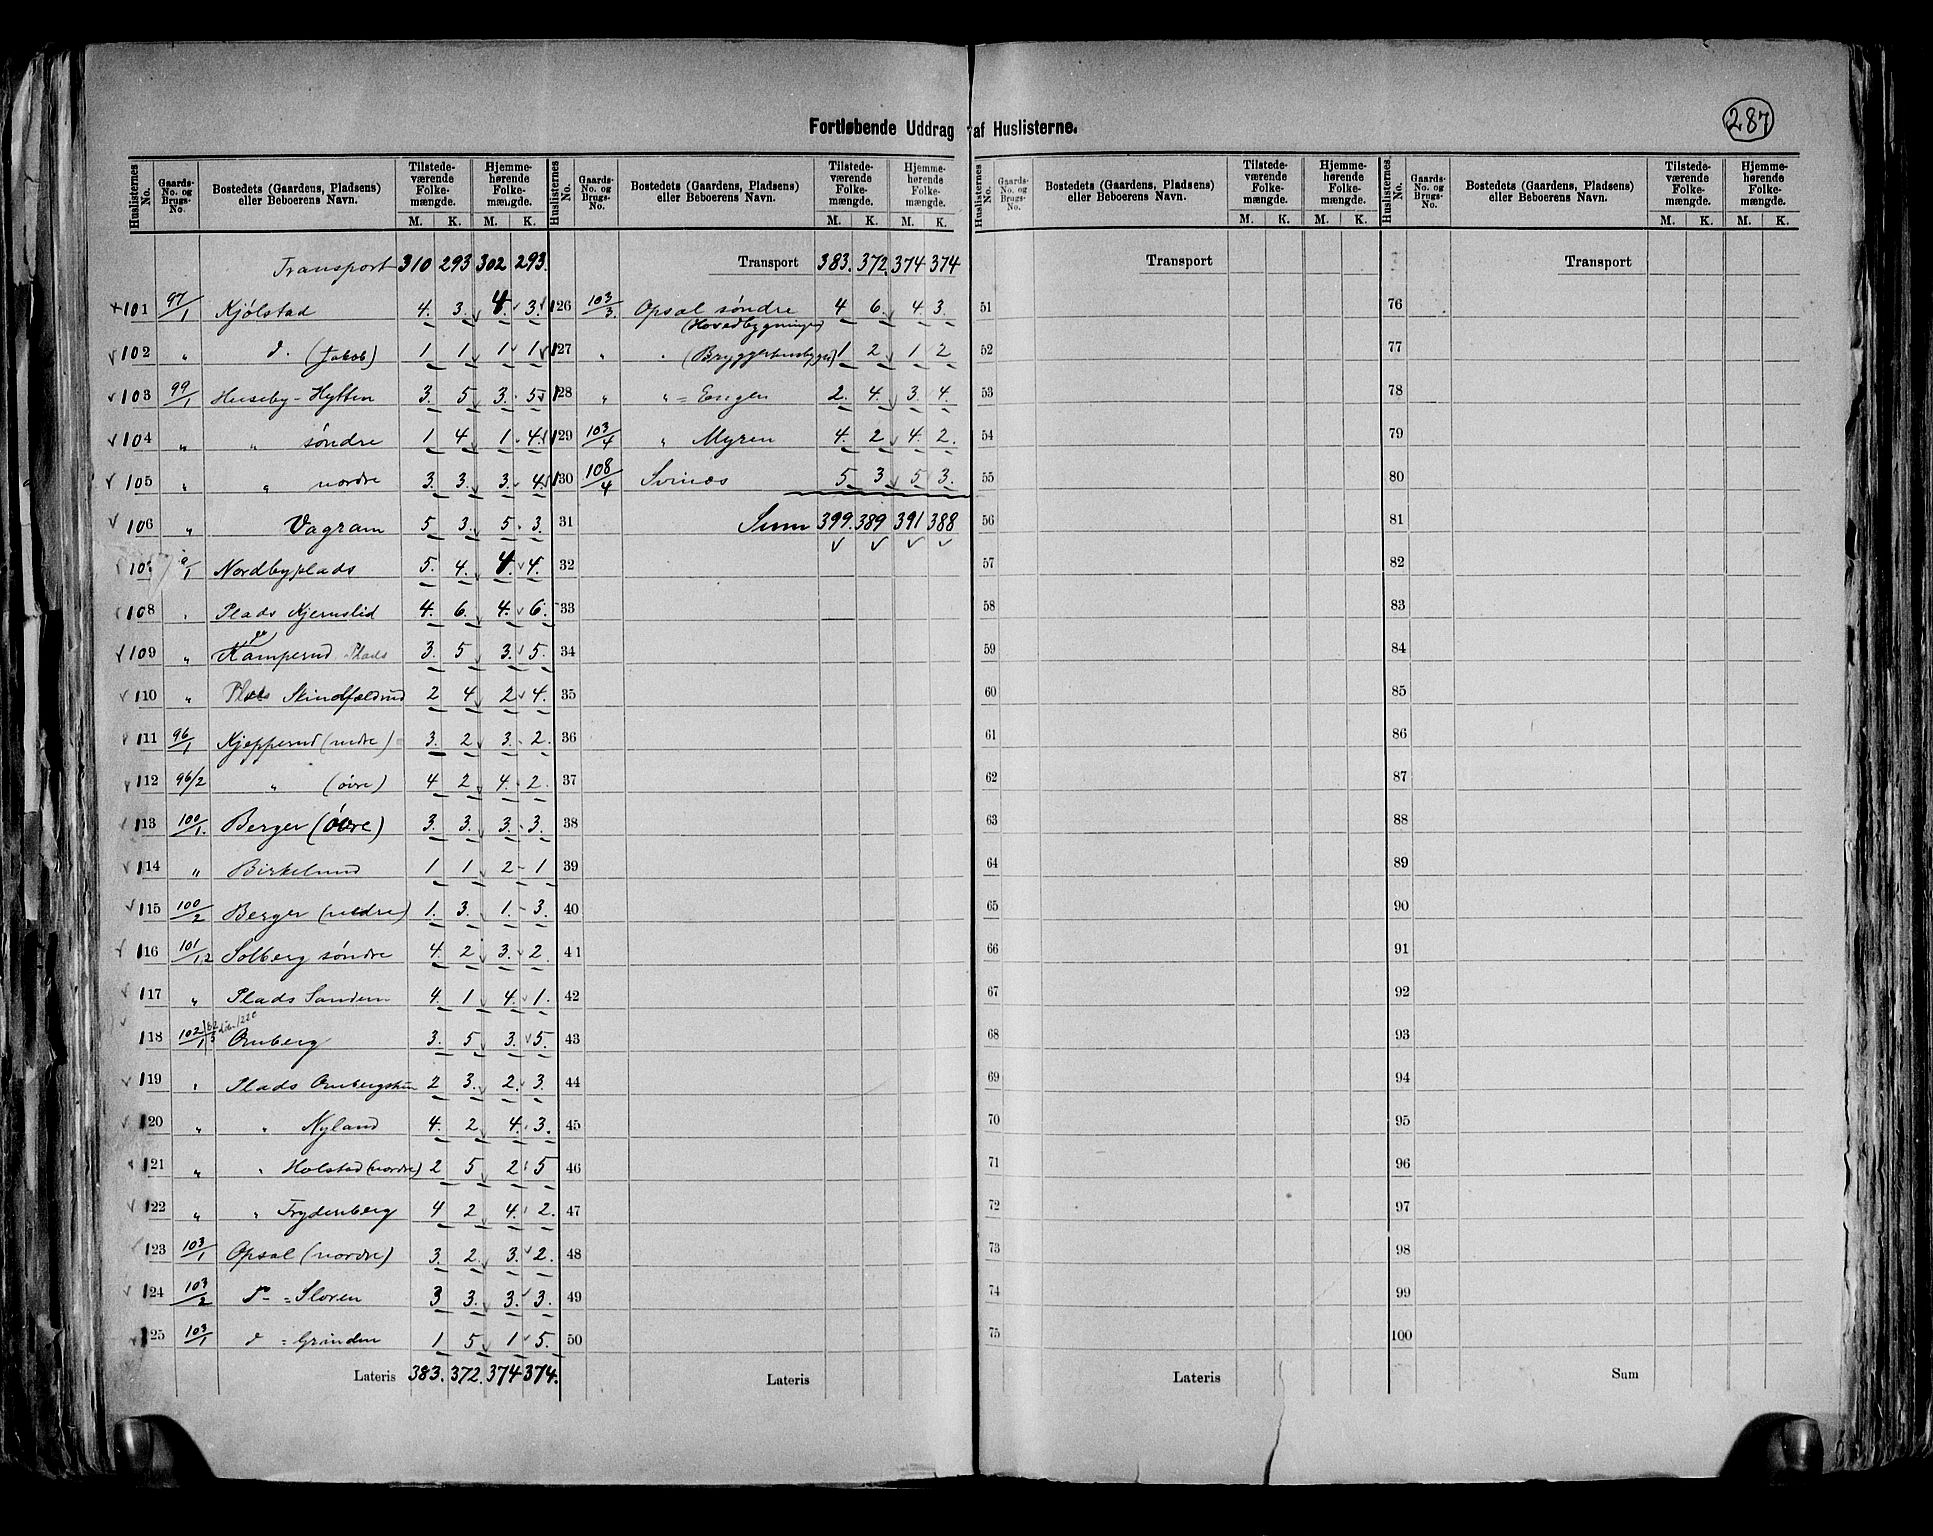 287
Fortløbende Uddrag af Huslisterne.
Huslisternes No. | Gaards-No. og Brugs-No. | Bostedets (Gaardens, Pladsens) eller Beboerens Navn. | Tilstedeværende Folkemængde. M. K. | Hjemmehørende Folkemængde. M. K.
Transport 310 293 302 293.
101 97/1 Kjølstad 4. 3. 4 3.
102 " d. (Jakob) 1 1 1 1
103 99/1 Huseby-Hytten 3. 5 3. 5
104 " " søndre 1 4 1 4.
105 " " nordre 3. 3. 3. 4.
106 " Vagram 5 3. 5 3.
107 Nordbyplads 5. 4. 4. 4.
108 " Plads Kjernslid 4. 6. 4. 6.
109 " Kamperud Plads 3. 5 3. 5.
110 " Plads Skindfældrud 2 4 2 4.
111 96/1 Kjepperud (nedre) 3. 2 3. 2.
112 96/2 " (øvre) 4 2 4. 2.
113 100/1. Berger (øvre) 3. 3. 3. 3.
114 " Birkelund 1 1 2 1
115 100/2 Berger (nedre) 1. 3. 1. 3.
116 101/1.2 Solberg søndre 4. 2 3. 2.
117 " Plads Sandem 4. 1 4. 1.
118 102/1 Omberg 3. 5 3. 5.
119 " Plads Ombergshus 2 3. 2. 3.
120 " " Nyland 4. 2 4. 3.
121 " " Holstad (nordre) 2 5 2 5
122 " " Frydenberg 4 2 4. 2.
123 103/1 Opsal (nordre) 3. 2. 3. 2.
124 103/2 d = Sloren 3 3. 3. 3.
125 103/1 d = Grinden 1 5 1 5.
Lateris 383. 372. 374 374.
Huslisternes No. | Gaards-No. og Brugs-No. | Bostedets (Gaardens, Pladsens) eller Beboerens Navn. | Tilstedeværende Folkemængde. M. K. | Hjemmehørende Folkemængde. M. K.
Transport 383. 372. 374 374
126 103/3. Opsal søndre (Hovedbygningen) 4 6. 4. 3.
127 " " (Bryggerhusbygn) 1 2 1 2
128 " " = Engen 2. 4. 3. 4.
129 103/4 " Myren 4. 2 4. 2.
130 108/4 Svinæs 5 3 5 3.
31 Sum 399. 389 391 388
32
33
34
35
36
37
38
39
40
41
42
43
44
45
46
47
48
49
50
Lateris
Huslisternes No. | Gaards-No. og Brugs-No. | Bostedets (Gaardens, Pladsens) eller Beboerens Navn. | Tilstedeværende Folkemængde. M. K. | Hjemmehørende Folkemængde. M. K.
Transport
51
52
53
54
55
56
57
58
59
60
61
62
63
64
65
66
67
68
69
70
71
72
73
74
75
Lateris
Huslisternes No. | Gaards-No. og Brugs-No. | Bostedets (Gaardens, Pladsens) eller Beboerens Navn. | Tilstedeværende Folkemængde. M. K. | Hjemmehørende Folkemængde. M. K.
Transport
76
77
78
79
80
81
82
83
84
85
86
87
88
89
90
91
92
93
94
95
96
97
98
99
100
Sum